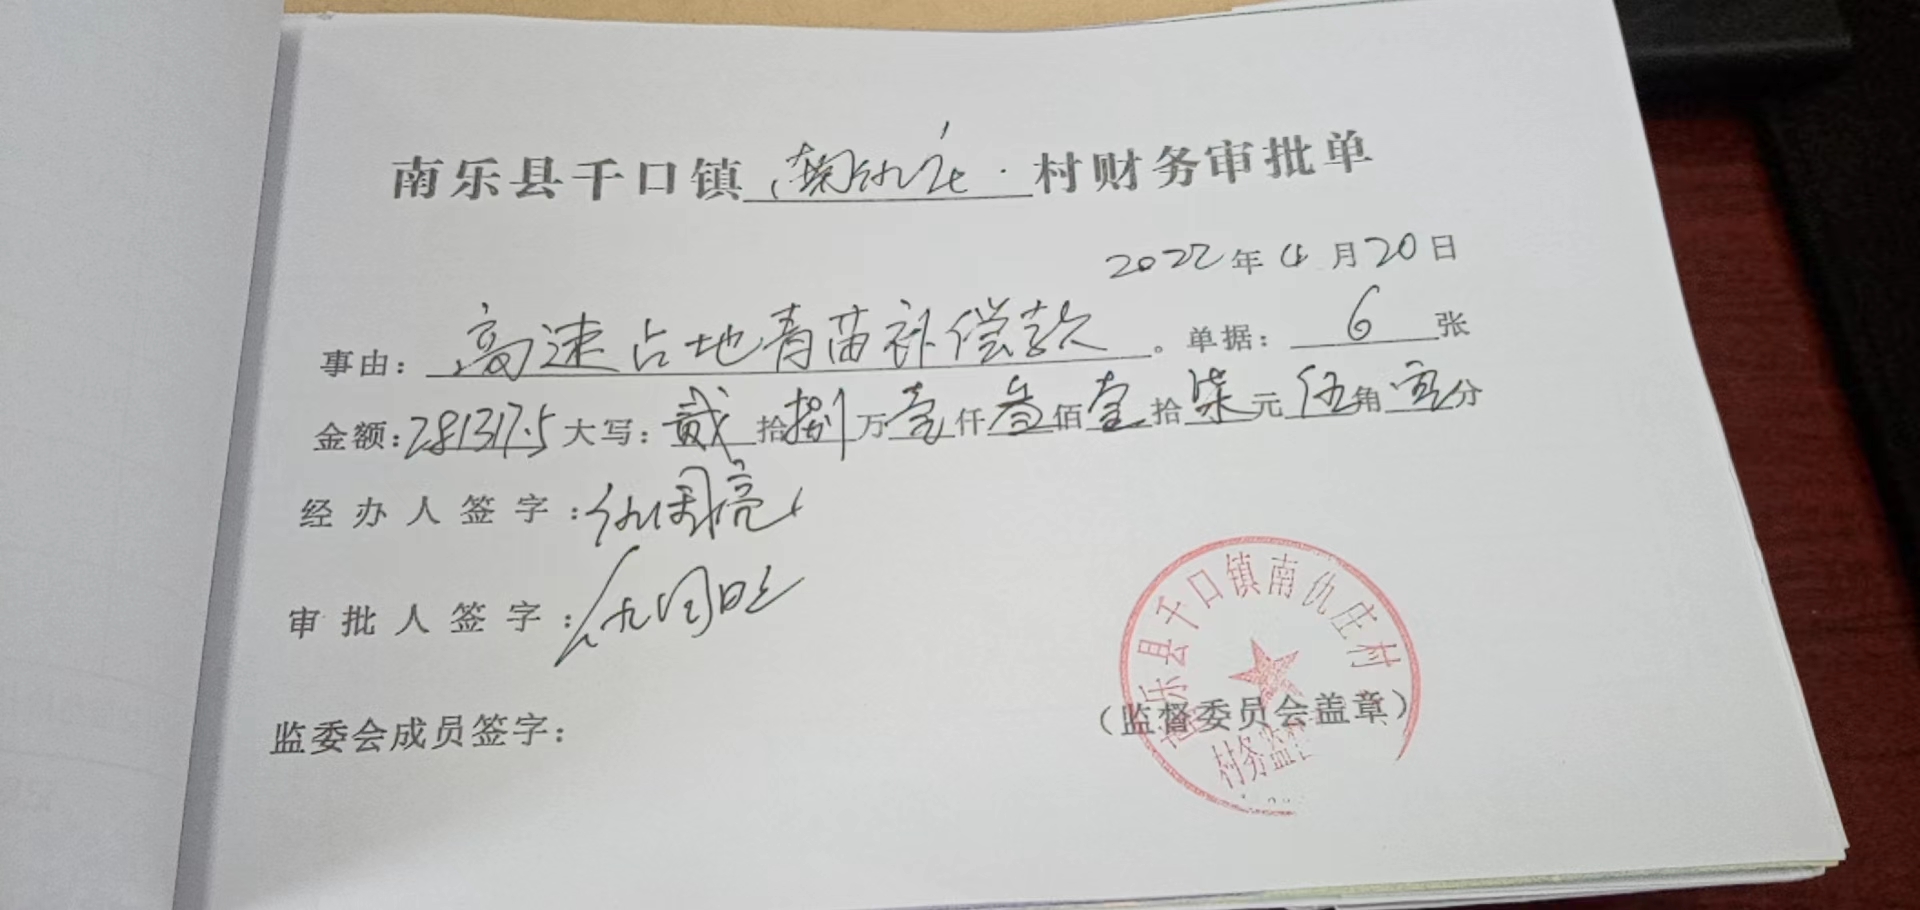 南乐县千口镇南仇庄村财务审批单
2022年4月20日
事由：高速占地青苗补偿款。单据：6张
金额：281317.5大写：贰拾捌万壹仟叁佰壹拾柒元伍角零分
经办人签字：仇周亮
审批人签字：
监委会成员签字：
（监督委员会盖章）
南乐县千口镇南仇庄村
村务监